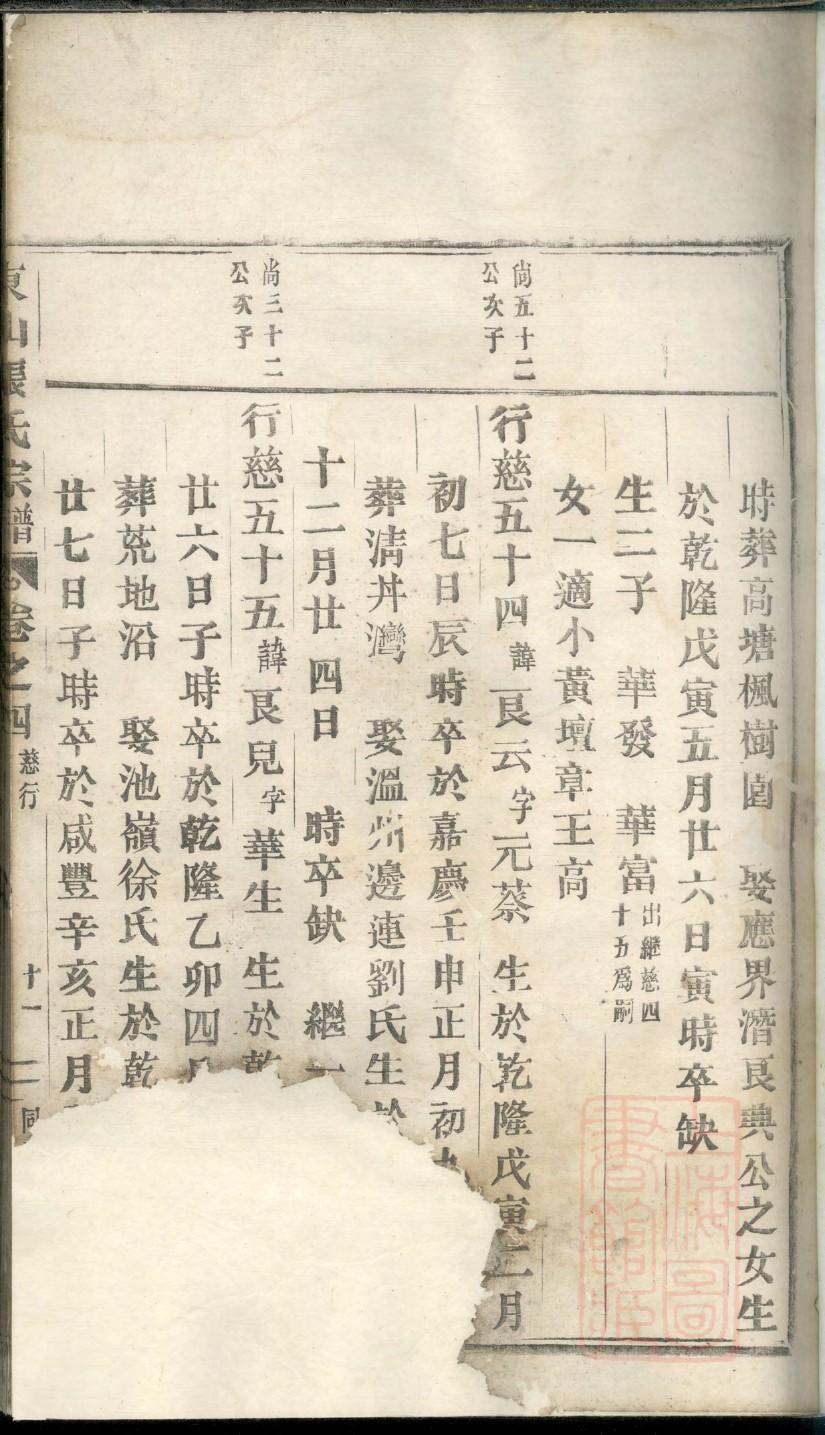 時葬高塘楓樹園　娶應界潛艮典公之女生
於乾隆戊寅五月廿六日寅時卒缺
生二子　華發　華富出繼慈四十五爲嗣
女一適小黃壇章王高
尙五十二公次子
行慈五十四諱艮云字元蔡　生於乾隆戊寅二月
初七日辰時卒於嘉慶壬申正月初九
葬淸丼灣　娶溫州邊連劉氏生於
十二月廿四日　時卒缺　繼一
尙三十二公次子
行慈五十五諱艮兒字華生　生於乾
廿六日子時卒於乾隆乙卯四月
葬荒地沿　娶池嶺徐氏生於乾
廿七日子時卒於咸豐辛亥正月
東山張氏宗譜　卷之四　慈行　十一　同
上海圖書館藏